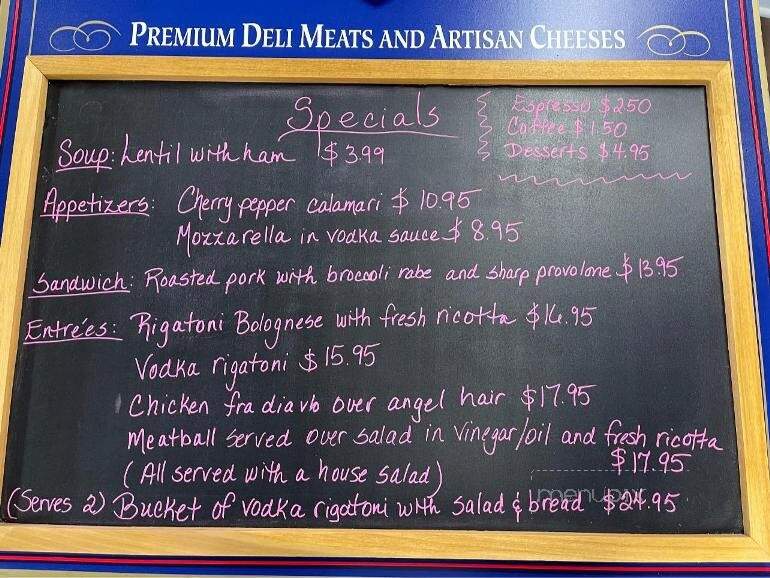 PREMIUM DELI MEATS AND ARTISAN CHEESES
Specials
Espresso $250
Coffee $1.50
Desserts $4.95
Soup: Lentil with ham $3.99
Appetizers: Cherry pepper calamari $10.95
Mozzarella in vodka sauce $8.95
Sandwich: Roasted pork with broccoli rabe and sharp provolone $13.95
Entrée's: Rigatoni Bolognese with fresh ricotta $16.95
Vodka rigatoni $15.95
Chicken fra diavlo over angel hair $17.95
Meatball served over salad in vinegar/oil and fresh ricotta
$17.95
(All served with a house salad)
menupix
(Serves 2) Bucket of vodka rigatoni with salad & bread $24.95